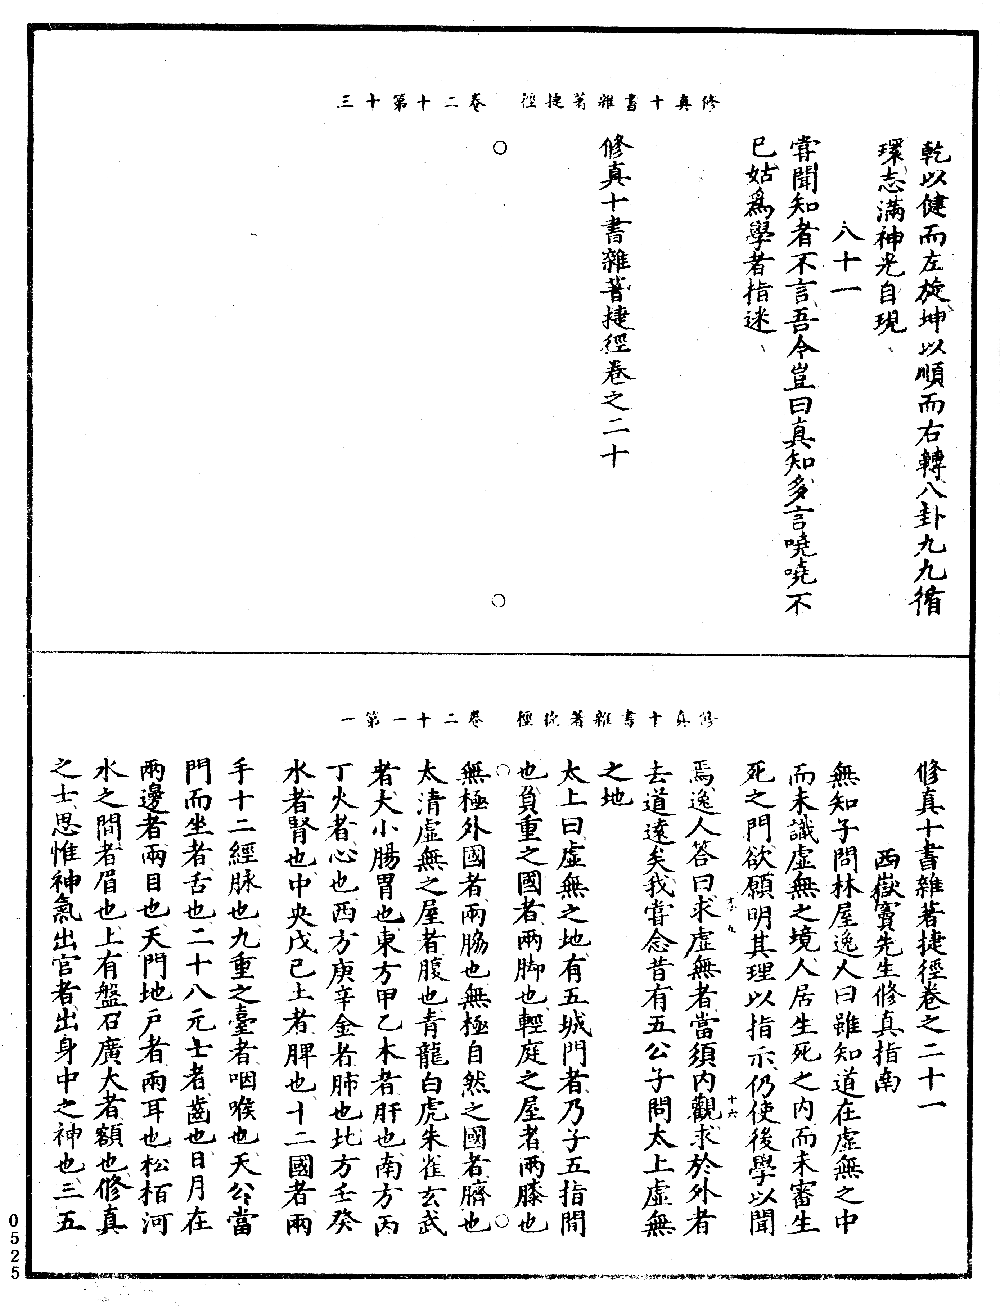 修真十書雜著捷徑　卷二十第十三
乾以健而左旋坤以順而右轉八卦九九循
環志滿神光自現
八十一
甞聞知者不言吾今豈曰真知多言嘵嘵不
已姑爲學者指迷
修真十書雜著捷徑卷之二十
修真十書雜著捷徑　卷二十一第一
修真十書雜著捷徑卷之二十一
西嶽竇先生修真指南
無知子問林屋逸人曰雖知道在虛無之中
而未識虛無之境人居生死之內而未審生
死之門欲願明其理以指示仍使後學以聞
焉逸人答曰求虛無者當須內觀求於外者
去道遠矣我甞念昔有五公子問太上虛無
之地
太上曰虛無之地有五城門者乃子五指間
也負重之國者兩脚也輕庭之屋者兩膝也
無極外國者兩脇也無極自然之國者臍也
太清虛無之屋者腹也青龍白虎朱雀玄武
者大小腸胃也東方甲乙木者肝也南方丙
丁火者心也西方庚辛金者肺也北方壬癸
水者腎也中央戊己土者脾也十二國者兩
手十二經脉也九重之臺者咽喉也天公當
門而坐者舌也二十八元士者齒也日月在
兩邊者兩目也天門地戶者兩耳也松栢河
水之間者眉也上有盤石廣大者額也修真
之士思惟神氣出官者出身中之神也三五
十六
0525